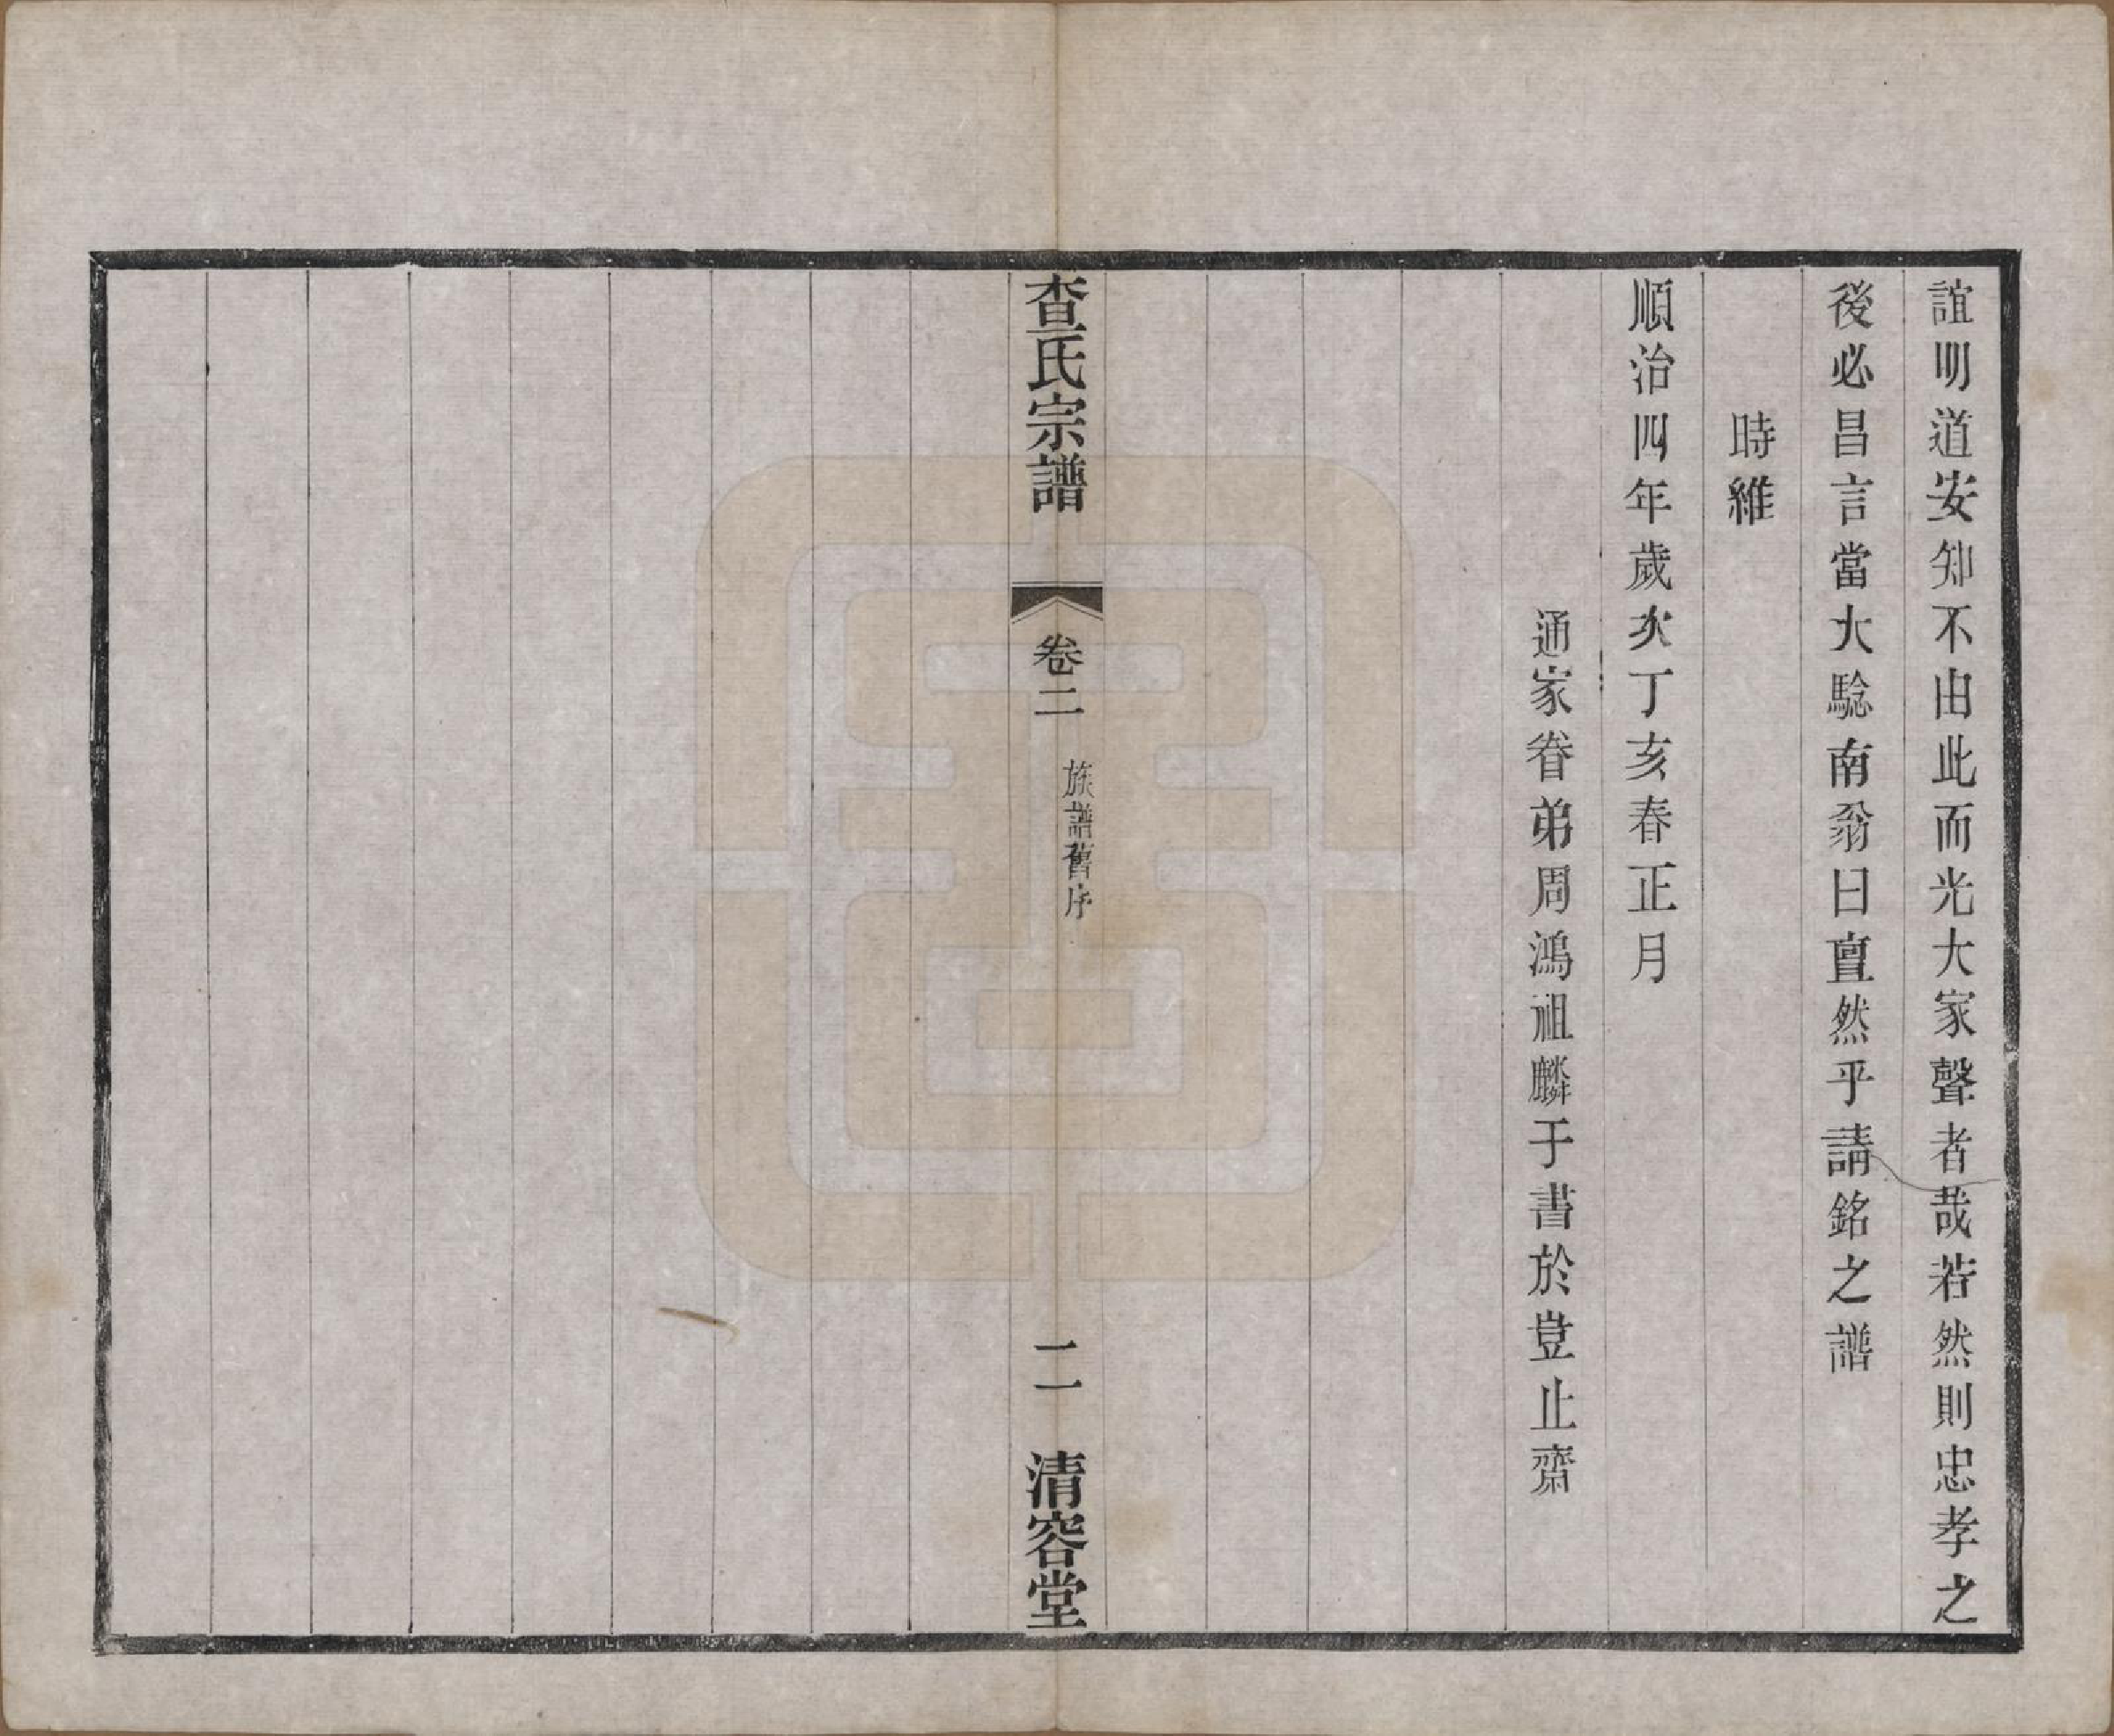 誼明道安知不由此而光大家聲者哉若然則忠孝之
後必昌言當大驗南翁曰亶然乎請銘之譜
時維
順治四年歲次丁亥春正月
通家眷弟周鴻祖麟于書於豈止齋
查氏宗譜
卷二
族譜舊序
二
清容堂